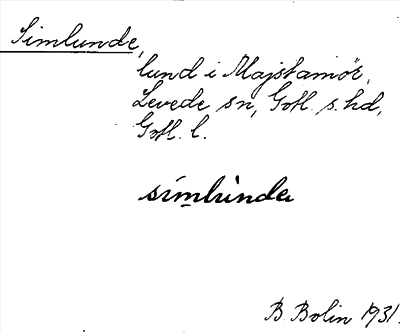 Simlunde,
lund i Majstamör,
Levede sn, Gotl. s. hd,
Gotl. l.
simlùnda
B. Bolin 1931.